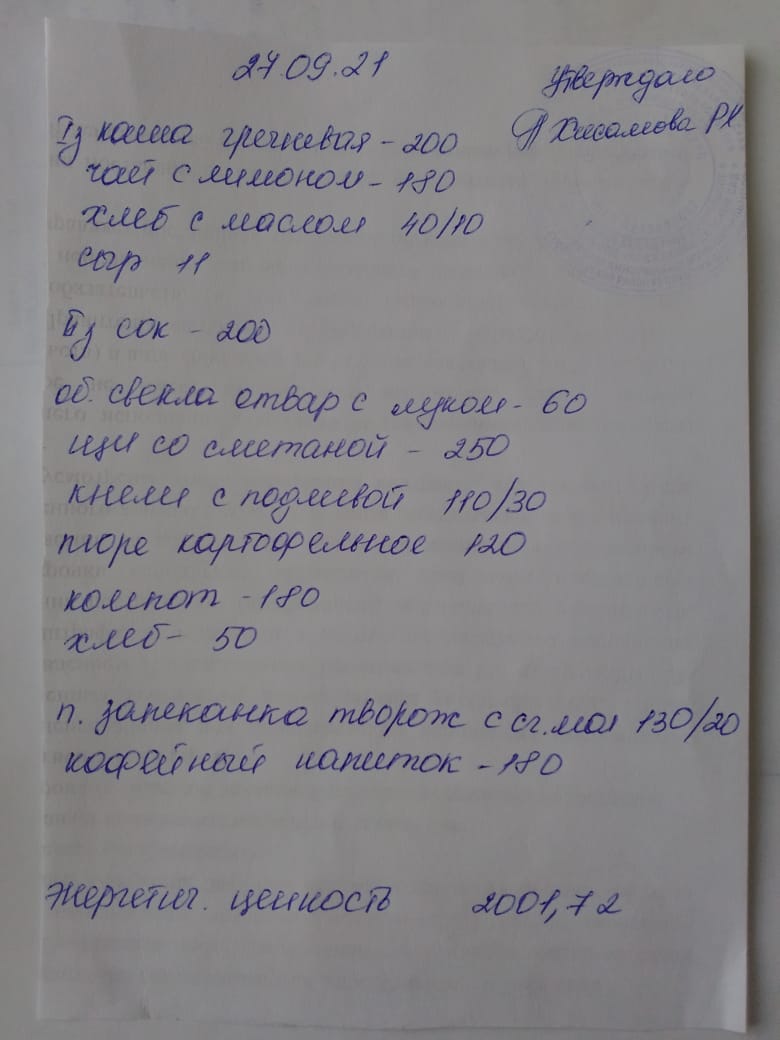 27.09.21
Утверждаю
Хисамова РН
Iз каша гречневая - 200
чай с лимоном - 180
хлеб с маслом 40/10
сыр 11
IIз сок - 200
об. свекла отвар с луком - 60
щи со сметаной - 250
кнели с подливой 110/30
пюре картофельное 120
компот - 180
хлеб - 50
п. запеканка творож с сг. мол 130/20
кофейный напиток - 180
Энергетич. ценность 2001,72